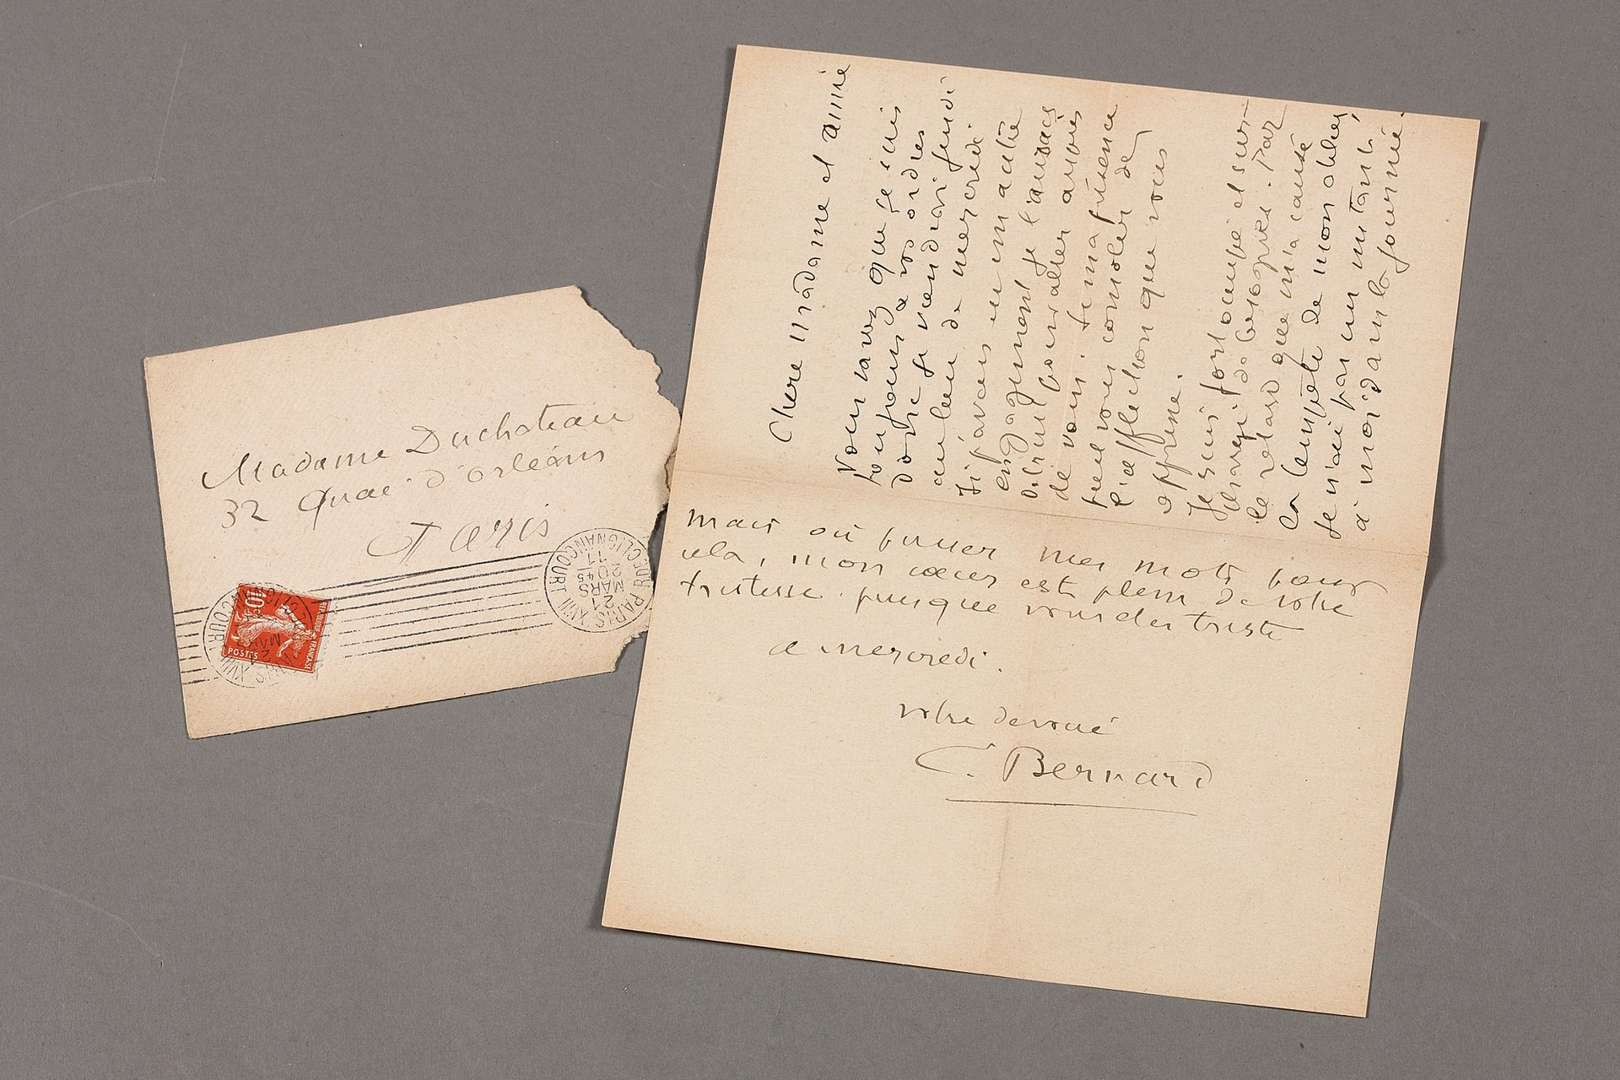 Madame Duchateau
32 Quai d'orléans
Paris
PARIS XVIII
R. DE CLIGNANCOURT
17 45
21
MARS
10c
POSTES
Chere Madame et amie
Vous savez que je suis
toujours à vos ordres
donc je viendrai jeudi
au lieu de mercredi
si j'avais eu un autre
engagement je l'aurais
pour aller auprès
de vous. si ma présence
peut vous consoler de
l'affliction que vous
opprime.
Je suis fort occupé et sur-
chargé de besognes. Par
le retard que m'a causé
la tempête de mon
je n'ai pas un instant
à moi dans la journée.
Mais où puiser mes mots pour
cela, mon cœur est plein de votre
tristesse. puisque vous etes triste
a mercredi.
votre devoué
C. Bernard